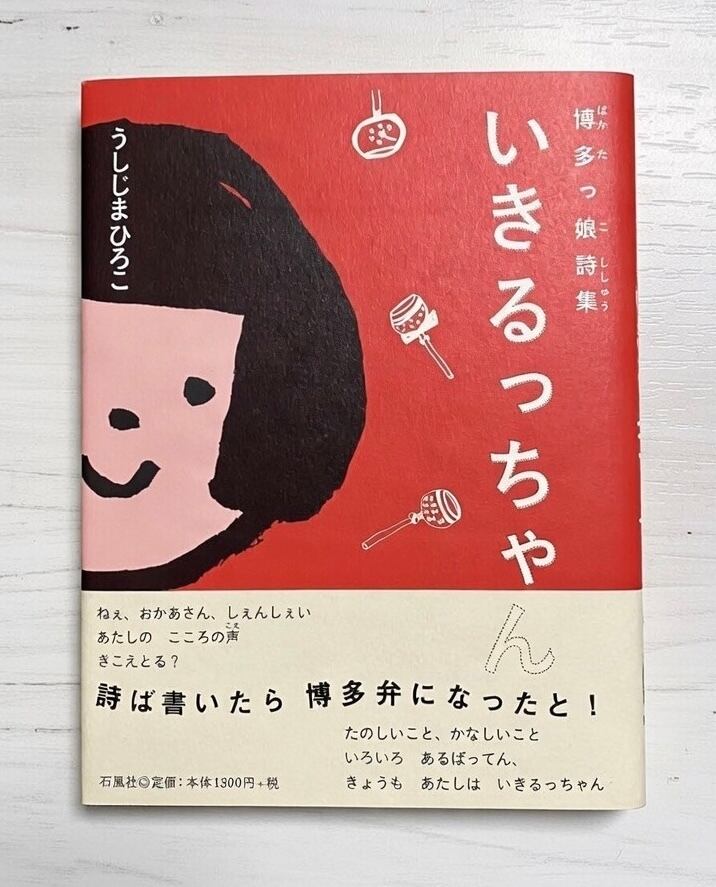 博多っ娘詩集
はかたこししゅう
いきるっちゃ
ん
うしじまひろこ
ねぇ、おかあさん、しぇんしぇい
あたしの こころの声
こえ
きこえとる？
詩ば書いたら 博多弁になったと！
たのしいこと、かなしいこと
いろいろ あるばってん、
きょうも あたしは いきるっちゃん
石風社◎定価：本体1300円+税